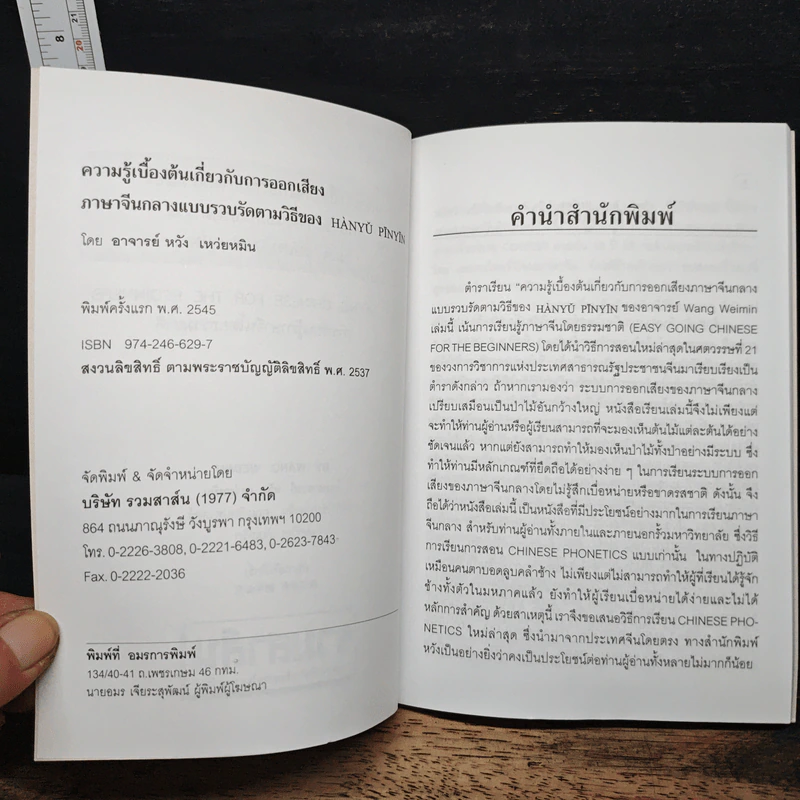 8
21
20
ความรู้เบื้องต้นเกี่ยวกับการออกเสียง
ภาษาจีนกลางแบบรวบรัดตามวิธีของ HÀNYǓ PĪNYĪN
โดย อาจารย์ หวัง เหว่ยหมิน
พิมพ์ครั้งแรก พ.ศ. 2545
ISBN 974-246-629-7
สงวนลิขสิทธิ์ ตามพระราชบัญญัติลิขสิทธิ์ พ.ศ. 2537
จัดพิมพ์ & จัดจำหน่ายโดย
บริษัท รวมสาส์น (1977) จำกัด
864 ถนนภาณุรังษี วังบูรพา กรุงเทพฯ 10200
โทร. 0-2226-3808, 0-2221-6483, 0-2623-7843
Fax. 0-2222-2036
พิมพ์ที่ อมรการพิมพ์
134/40-41 ถ.เพชรเกษม 46 กทม.
นายอมร เจียระสุพัฒน์ ผู้พิมพ์ผู้โฆษณา
คำนำสำนักพิมพ์
ตำราเรียน "ความรู้เบื้องต้นเกี่ยวกับการออกเสียงภาษาจีนกลาง
แบบรวบรัดตามวิธีของ HÀNYǓ PĪNYĪN ของอาจารย์ Wang Weimin
เล่มนี้ เน้นการเรียนรู้ภาษาจีนโดยธรรมชาติ (EASY GOING CHINESE
FOR THE BEGINNERS) โดยได้นำวิธีการสอนใหม่ล่าสุดในศตวรรษที่ 21
ของวงการวิชาการแห่งประเทศสาธารณรัฐประชาชนจีนมาเรียบเรียงเป็น
ตำราดังกล่าว ถ้าหากเรามองว่า ระบบการออกเสียงของภาษาจีนกลาง
เปรียบเสมือนเป็นป่าไม้อันกว้างใหญ่ หนังสือเรียนเล่มนี้จึงไม่เพียงแต่
จะทำให้ท่านผู้อ่านหรือผู้เรียนสามารถที่จะมองเห็นต้นไม้แต่ละต้นได้อย่าง
ชัดเจนแล้ว หากแต่ยังสามารถทำให้มองเห็นป่าไม้ทั้งป่าอย่างมีระบบ ซึ่ง
ทำให้ท่านมีหลักเกณฑ์ที่ยึดถือได้อย่างง่าย ๆ ในการเรียนระบบการออก
เสียงของภาษาจีนกลางโดยไม่รู้สึกเบื่อหน่ายหรือขาดรสชาติ ดังนั้น จึง
ถือได้ว่าหนังสือเล่มนี้ เป็นหนังสือที่มีประโยชน์อย่างมากในการเรียนภาษา
จีนกลาง สำหรับท่านผู้อ่านทั้งภายในและภายนอกรั้วมหาวิทยาลัย ซึ่งวิธี
การเรียนการสอน CHINESE PHONETICS แบบเก่านั้น ในทางปฏิบัติ
เหมือนคนตาบอดลูบคลำช้าง ไม่เพียงแต่ไม่สามารถทำให้ผู้ที่เรียนได้รู้จัก
ช้างทั้งตัวในมหภาคแล้ว ยังทำให้ผู้เรียนเบื่อหน่ายได้ง่ายและไม่ได้
หลักการสำคัญ ด้วยสาเหตุนี้ เราจึงขอเสนอวิธีการเรียน CHINESE PHO-
NETICS ใหม่ล่าสุด ซึ่งนำมาจากประเทศจีนโดยตรง ทางสำนักพิมพ์
หวังเป็นอย่างยิ่งว่าคงเป็นประโยชน์ต่อท่านผู้อ่านทั้งหลายไม่มากก็น้อย